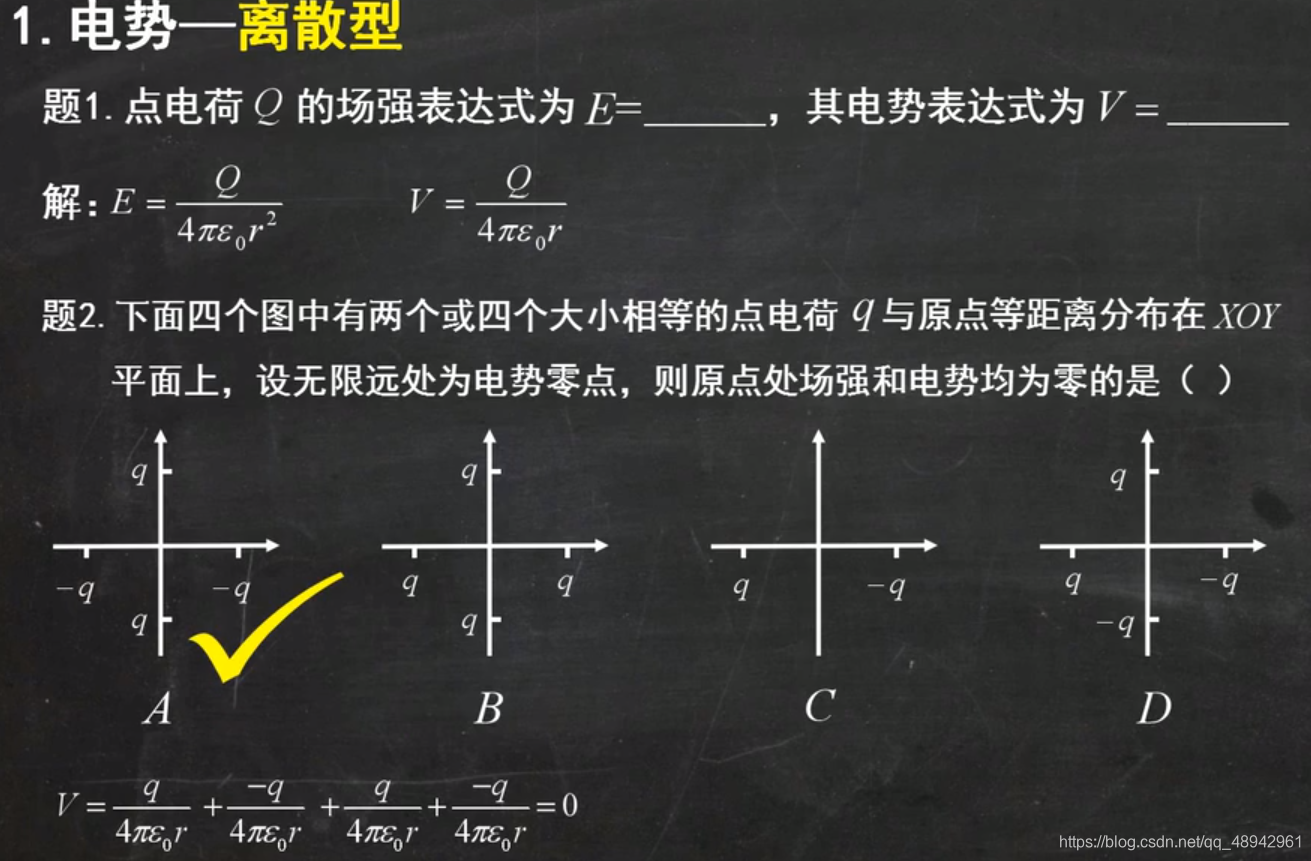 1. 电势—离散型
题1. 点电荷 Q 的场强表达式为 E=______，其电势表达式为 V =______
解: E = Q / 4πε₀r²  V = Q / 4πε₀r
题2. 下面四个图中有两个或四个大小相等的点电荷 q 与原点等距离分布在 XOY
平面上，设无限远处为电势零点，则原点处场强和电势均为零的是（ ）
q q q
-q -q q q q -q q -q
q q -q
A B C D
V = q / 4πε₀r + -q / 4πε₀r + q / 4πε₀r + -q / 4πε₀r = 0
https://blog.csdn.net/qq_48942961